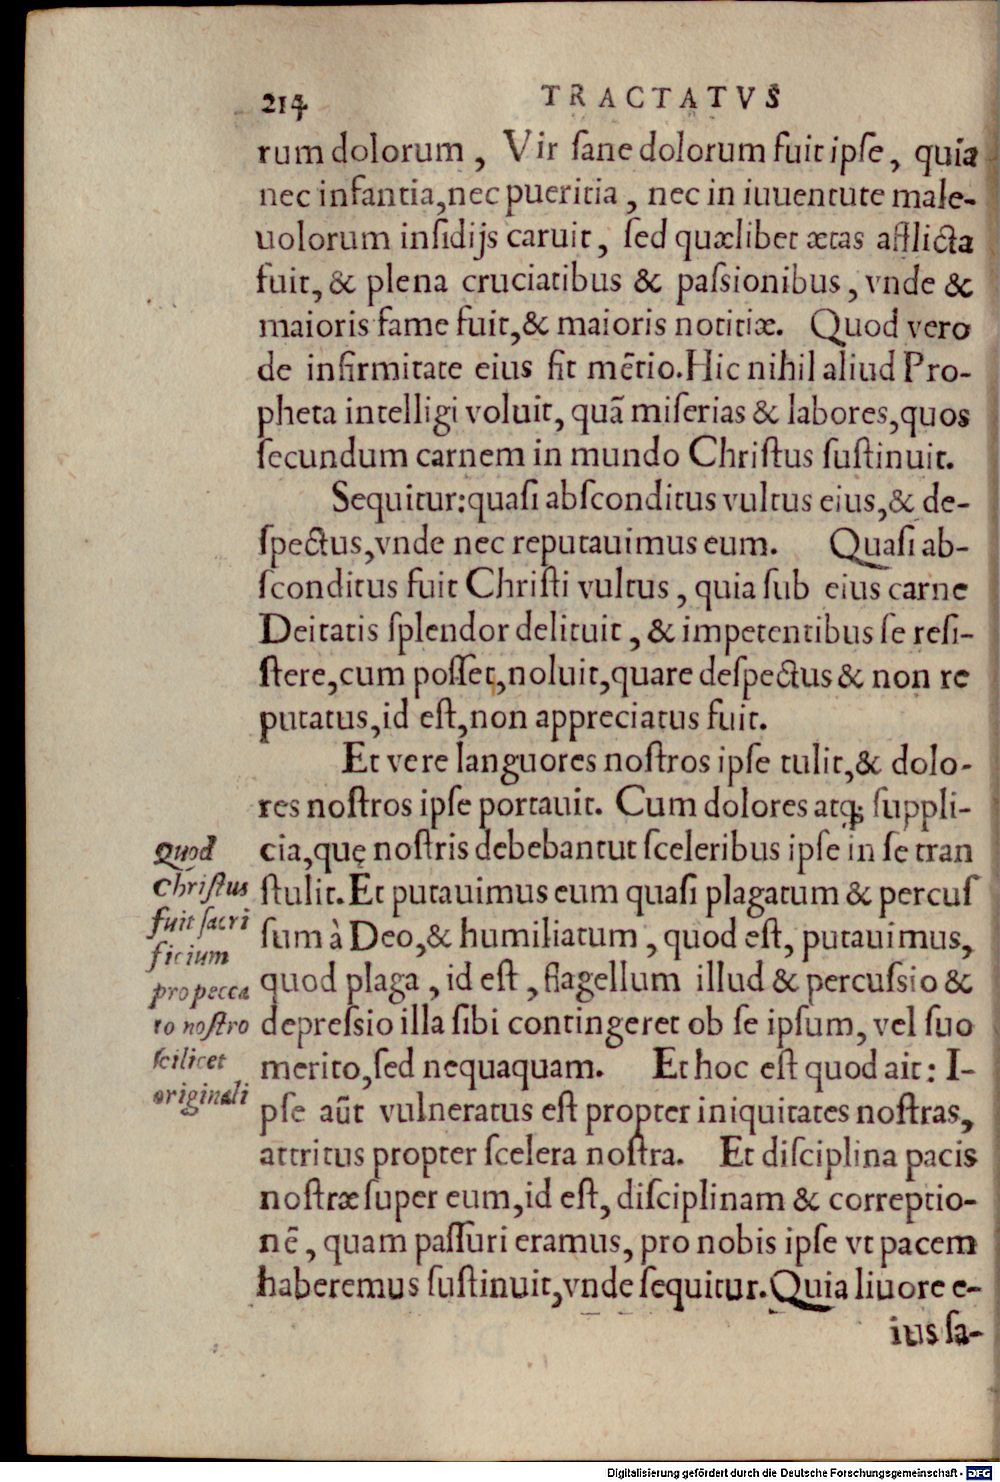 214 TRACTATVS
rum dolorum, Vir ſane dolorum fuit ipſe, quia
nec infantia, nec pueritia, nec in iuuentute male-
uolorum inſidijs caruit, ſed quælibet ætas afflicta
fuit, & plena cruciatibus & paſsionibus, vnde &
maioris fame fuit, & maioris notitiæ. Quod vero
de infirmitate eius fit mẽtio. Hic nihil aliud Pro-
pheta intelligi voluit, quã miſerias & labores, quos
ſecundum carnem in mundo Chriſtus ſuſtinuit.
Sequitur: quaſi abſconditus vultus eius, & de-
ſpectus, vnde nec reputauimus eum. Quaſi ab-
ſconditus fuit Chriſti vultus, quia ſub eius carne
Deitatis ſplendor delituit, & impetentibus ſe reſi-
ſtere, cum poſſet, noluit, quare deſpectus & non re
putatus, id eſt, non appreciatus fuit.
Et vere languores noſtros ipſe tulit, & dolo-
res noſtros ipſe portauit. Cum dolores atq; ſuppli-
cia, quę noſtris debebantut ſceleribus ipſe in ſe tran
ſtulit. Et putauimus eum quaſi plagatum & percuſ
ſum à Deo, & humiliatum, quod eſt, putauimus,
quod plaga, id eſt, flagellum illud & percuſsio &
depreſsio illa ſibi contingeret ob ſe ipſum, vel ſuo
merito, ſed nequaquam. Et hoc eſt quod ait: I-
pſe aũt vulneratus eſt propter iniquitates noſtras,
attritus propter ſcelera noſtra. Et diſciplina pacis
noſtræ ſuper eum, id eſt, diſciplinam & correptio-
nẽ, quam paſſuri eramus, pro nobis ipſe vt pacem
haberemus ſuſtinuit, vnde ſequitur. Quia liuore e-
ius ſa-
Quod
Chriſtus
fuit ſacri
ficium
pro pecca
to noſtro
ſcilicet
originali
Digitalisierung gefördert durch die Deutsche Forschungsgemeinschaft - DFG